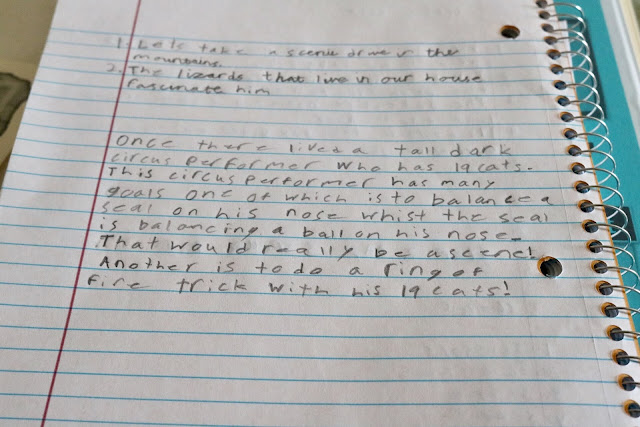 1. Let's take a scenic drive in the
mountains.
2. The lizards that live in our house
fascinate him
Once there lived a tall dark
circus performer who has 19 cats.
This circus performer has many
goals one of which is to balance a
seal on his nose whist the seal
is balancing a ball on his nose.
That would really be a scene!
Another is to do a ring of
fire trick with his 19 cats!